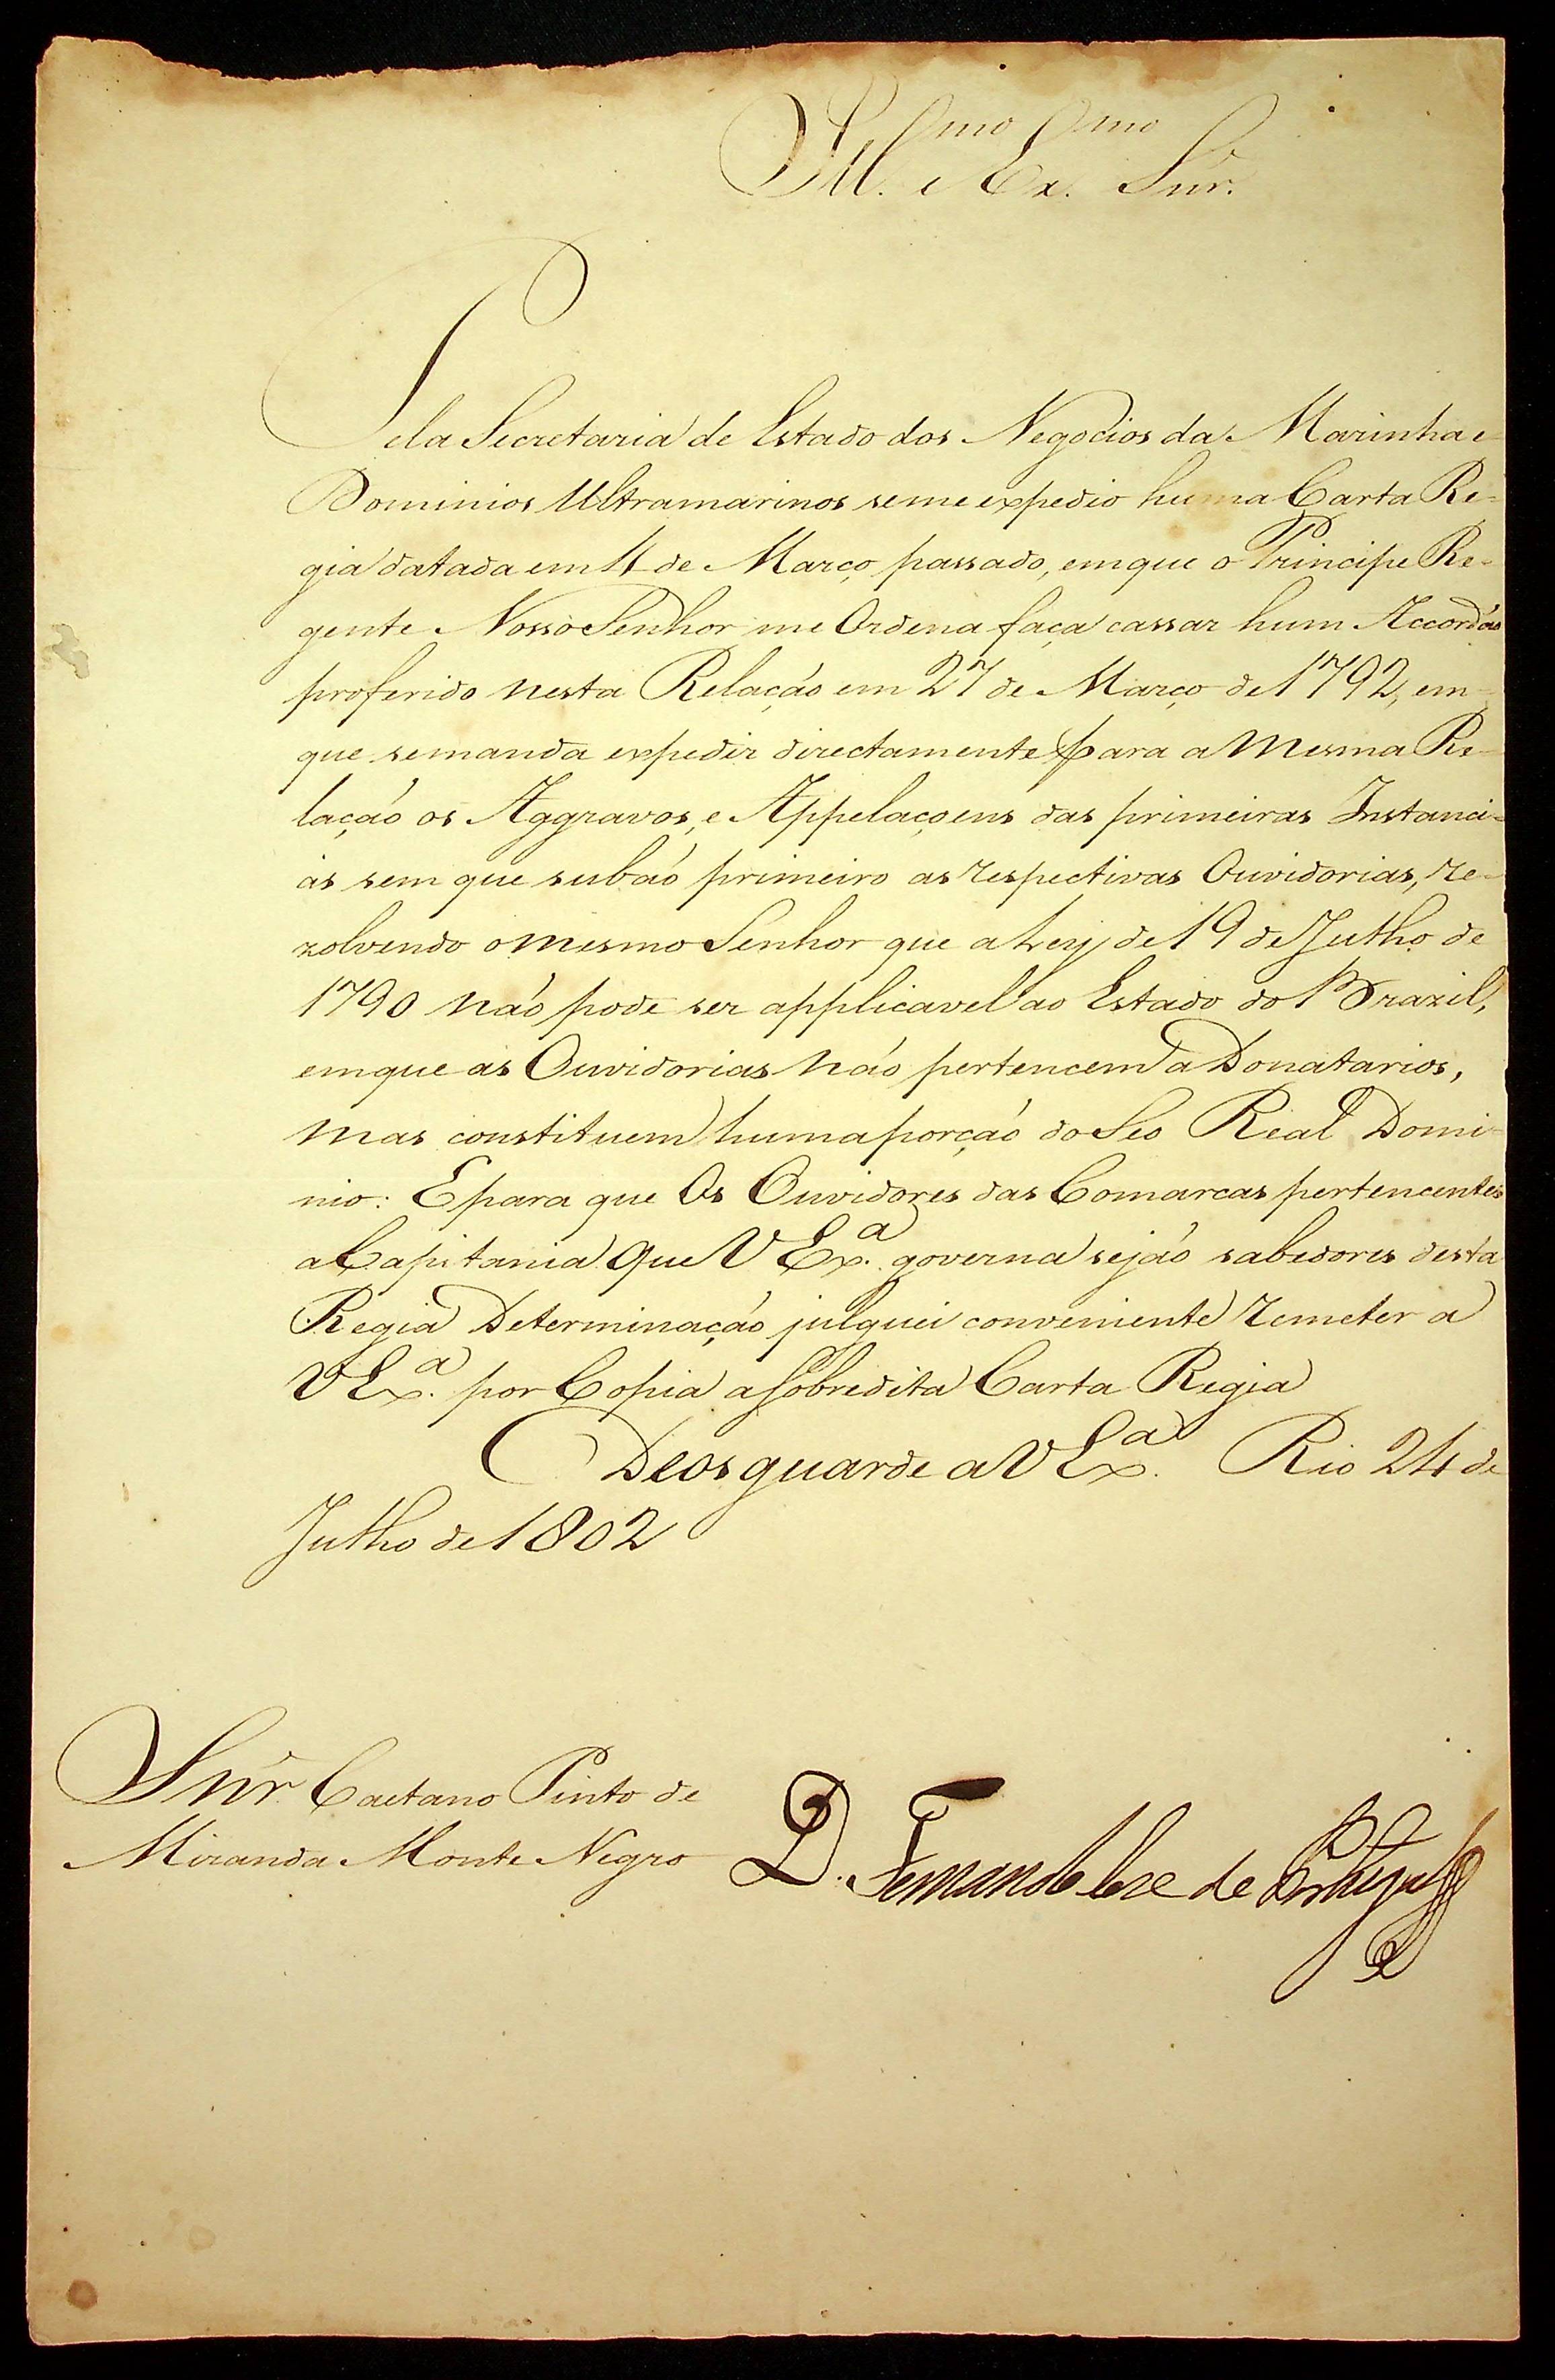 Ill.mo e Ex.mo Snr.
Pela Secretaria de Estado dos Negocios da Marinha e
Dominios Ultramarinos se me expedio huma Carta Re-
gia datada em 4 de Março passado, em que o Principe Re-
gente Nosso Senhor me Ordena faça cassar hum Accordáo
proferido nesta Relaçáo em 27 de Março de 1792, em-
que semanda expedir directamente para a Mesma Re-
laçáo os Aggravos, e Appelaçoens das primeiras Instanci-
as sem que subáo primeiro as respectivas Ouvidorias, re-
zolvendo o mesmo Senhor que a Ley de 19 de Julho de
1790 náo pode ser applicavel ao Estado do Brazil,
em que as Ouvidorias náo pertencem a Donatarios,
mas constituem huma porçáo do Seo Real Domi-
nio: E para que Os Ouvidores das Comarcas pertencentes
a Capitania que V Ex.a governa sejáo sabedores desta
Regia Determinaçáo julguei conveniente remeter a
V Ex.a por Copia a sobredita Carta Regia
Deos guarde a V Ex.a Rio 24 de
Julho de 1802
Snr. Caetano Pinto de
Miranda Monte Negro
D. Fernando Jose de Portugal